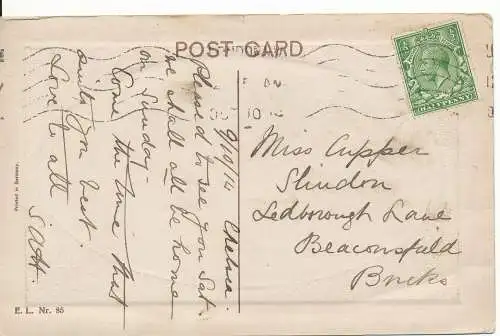 POST CARD
9/10/14 Chelsea.
Pleased to see you Sat.
we shall all be home
on Sunday.
Come the time that
suits you best.
Love to all
Miss Cupper
Slindon
Ledborough Lane
Beaconsfield
Bucks
HALFPENNY
Printed in Germany.
E. L. Nr. 85